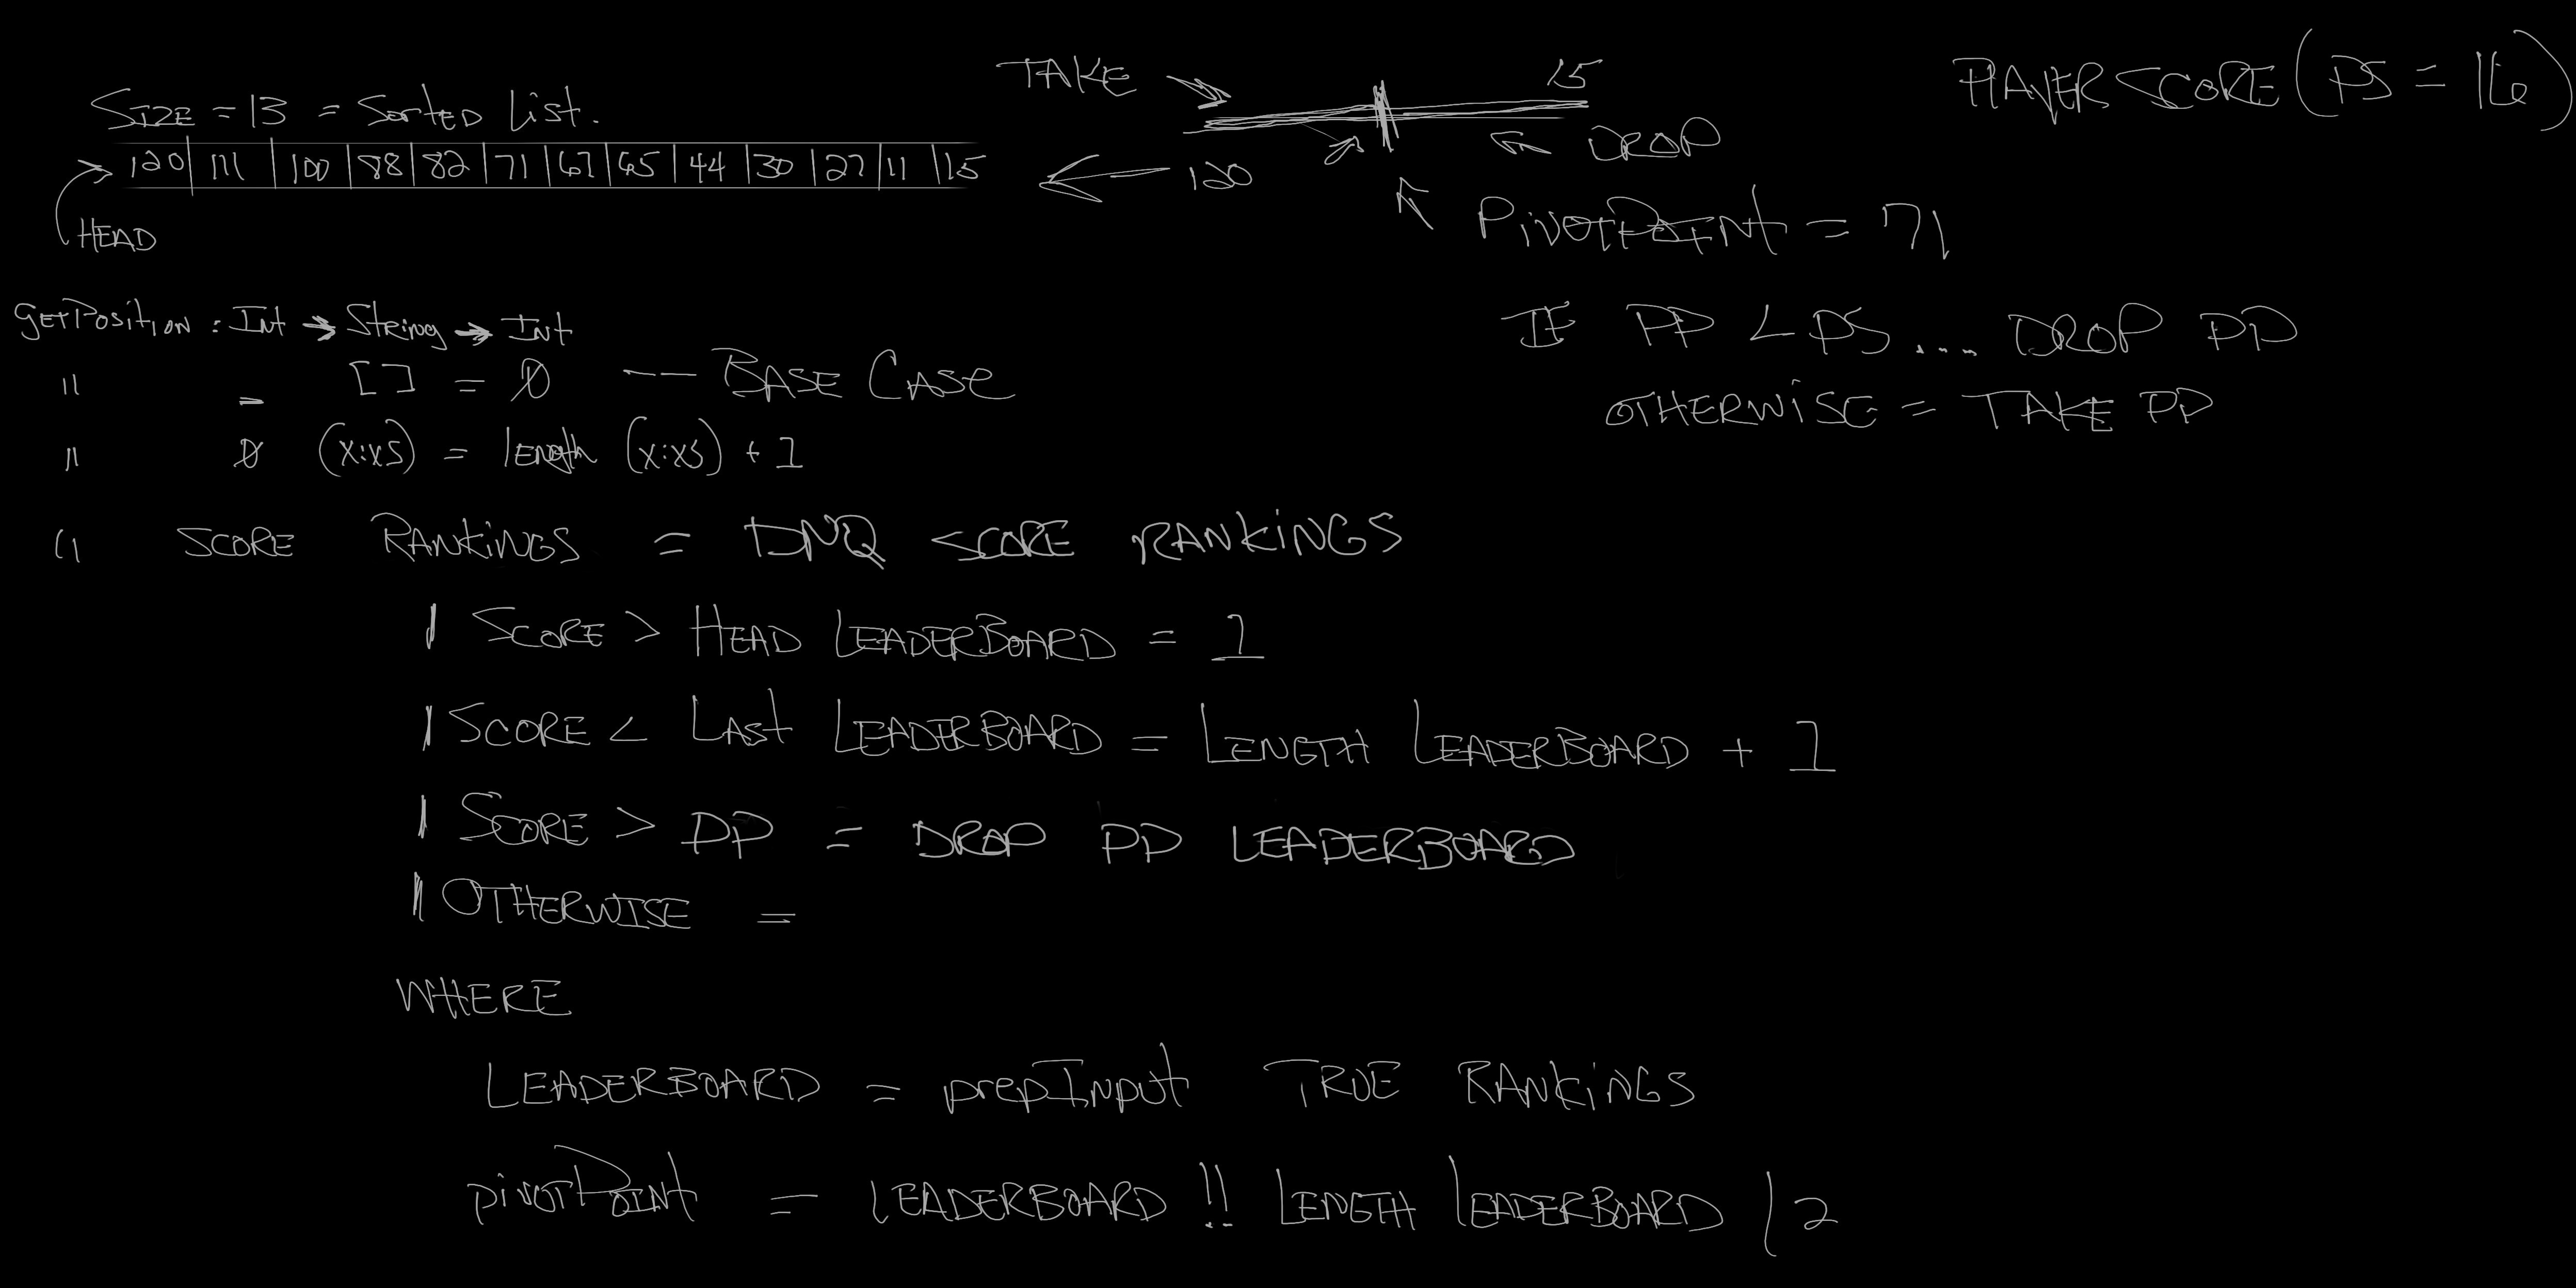 Size = 13 = Sorted List.
120 | 111 | 100 | 88 | 82 | 71 | 67 | 65 | 44 | 30 | 27 | 11 | 15
HEAD
TAKE
15
DROP
120
PLAYER SCORE (PS = 16)
PivotPoint = 71
IF PP < PS ... DROP PP
OTHERWISE = TAKE PP
getPosition : Int → String → Int
" _ [] = 0 -- BASE CASE
" 0 (x:xs) = length (x:xs) + 1
" SCORE RANKINGS = DNQ SCORE RANKINGS
| SCORE > HEAD LEADERBOARD = 1
| SCORE < LAST LEADERBOARD = LENGTH LEADERBOARD + 1
| SCORE > PP = DROP PP LEADERBOARD
| OTHERWISE =
WHERE
LEADERBOARD = prepInput TRUE RANKINGS
pivotPoint = LEADERBOARD !! LENGTH LEADERBOARD / 2